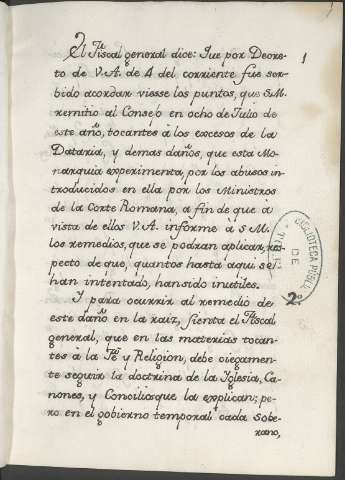 1
El Fiscal general dice: Que por Decre-
to de V.A. de 4 del corriente fue ser-
bido acordar viesse los puntos, que S.M.
remitio al Consejo en ocho de Julio de
este año, tocantes à los excesos de la
Dataria, y demas daños, que esta Mo-
narquia experimenta, por los abusos in-
troducidos en ella por los Ministros
de la Corte Romana, a fin de que à
vista de ellos V.A. informe à S M.
los remedios, que se podran aplicar, res-
pecto de que, quantos hasta aqui se
han intentado, han sido inutiles.
Y para ocurrir al remedio de
este daño en la raiz, sienta el Fiscal
general, que en las materias tocan-
tes à la Fè y Religion, debe ciegamen-
te seguir la doctrina de la Iglesia, Ca-
nones, y Concilios que la explican; pe-
ro en el gobierno temporal cada sobe-
rano,
BIBLIOTECA
DE
2º